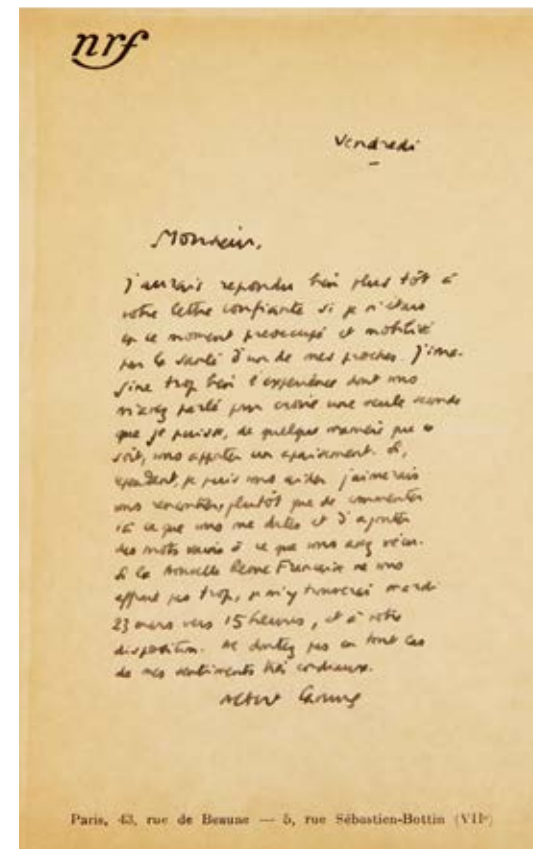 nrf
Vendredi
Monsieur,
J'aurais répondu bien plus tôt à
votre lettre confiante si je n'étais
en ce moment préoccupé et mobilisé
par la santé d'un de mes proches. J'ima-
gine trop bien l'expérience dont vous
m'avez parlé pour croire une seule seconde
que je puisse, de quelque manière que ce
soit, vous apporter un apaisement. Si,
cependant, je puis vous aider j'aimerais
vous rencontrer, plutôt que de commenter
ici ce que vous me dites et d'ajouter
des mots vains à ce que vous avez vécu.
Si la Nouvelle Revue Française ne vous
effraie pas trop, je m'y trouverai mardi
23 mars vers 15 heures, et à votre
disposition. Ne doutez pas en tout cas
de mes sentiments très cordiaux.
Albert Camus
Paris, 43, rue de Beaune — 5, rue Sébastien-Bottin (VIIe)